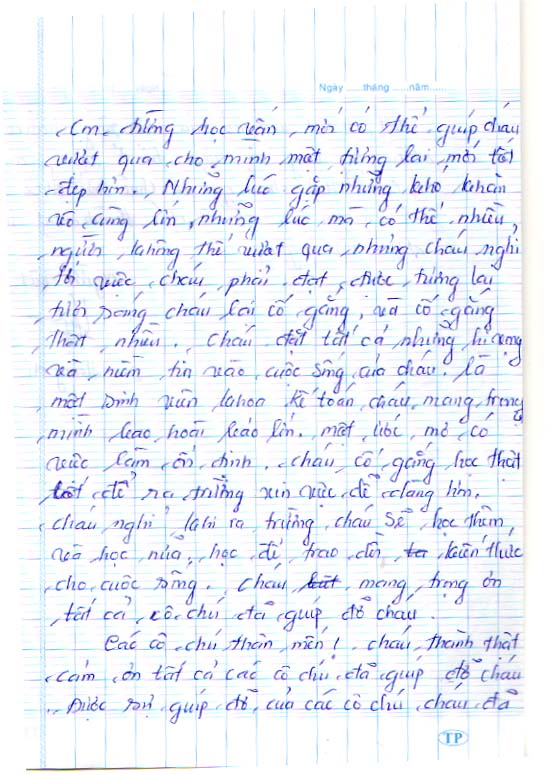 Ngày ......tháng ......năm......
Con đường học vấn mới có thể giúp cháu
vượt qua cho mình một tương lai mới tốt
đẹp hơn. Những lúc gặp những khó khăn
vô cùng lớn, những lúc mà có thể nhiều
người không thể vượt qua nhưng cháu nghĩ
tới việc cháu phải đạt được tương lai
tươi sáng cháu lại cố gắng, và cố gắng
thật nhiều. Cháu đặt tất cả những hi vọng
và niềm tin vào cuộc sống của cháu. là
một sinh viên khoa kế toán cháu mang trong
mình hoài lớn. một ước mơ có
việc làm ổn định. cháu cố gắng học thật
tốt để ra trường xin việc dễ dàng hơn.
cháu nghĩ khi ra trường cháu sẽ học thêm
và học nữa, học để trao dồi kiến thức
cho cuộc sống. cháu mang trọng ơn
tất cả cô chú đã giúp đỡ cháu.
Các cô chú thân mến! cháu thành thật
cảm ơn tất cả các cô chú đã giúp đỡ cháu
. Được sự giúp đỡ của các cô chú cháu đã
TP